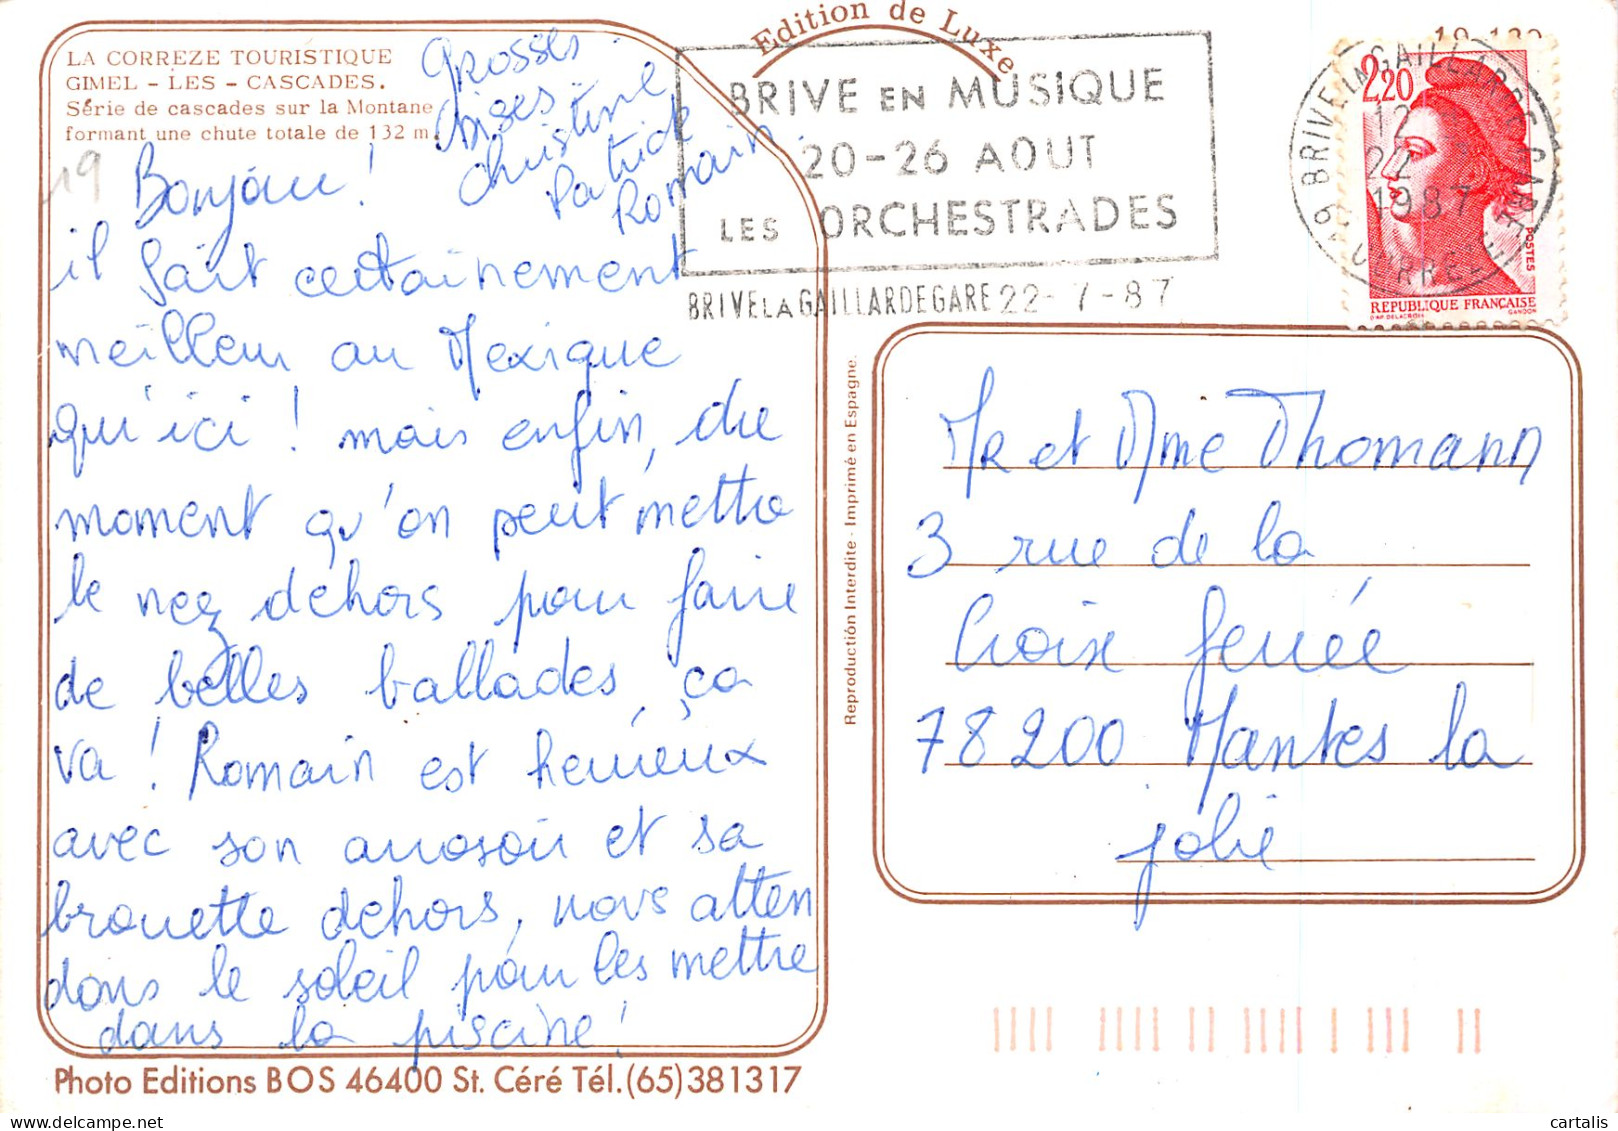 Edition de Luxe
LA CORREZE TOURISTIQUE
GIMEL - LES - CASCADES.
Série de cascades sur la Montane
formant une chute totale de 132 m.
19
Grosses
Bises
Christine
Patrick
Romain
Bonjour !
il fait certainement
meilleur au Mexique
qu'ici ! mais enfin, du
moment qu'on peut mettre
le nez dehors pour faire
de belles ballades, ça
va ! Romain est heureux
avec son arrosoir et sa
brouette dehors, nous atten
dons le soleil pour les mettre
dans la piscine !
Photo Editions BOS 46400 St. Céré Tél.(65)381317
Reproduction Interdite - Imprimé en Espagne.
BRIVE EN MUSIQUE
20-26 AOUT
LES ORCHESTRADES
BRIVE LA GAILLARDE GARE 22-7-87
19 BRIVE LA GAILLARDE GARE
12
22 7
1987
CORREZE
2,20
POSTES
REPUBLIQUE FRANÇAISE
D'AP. DELACROIX GANDON
Mr et Mme Thomann
3 rue de la
Croix ferrée
78200 Mantes la
jolie
cartalis